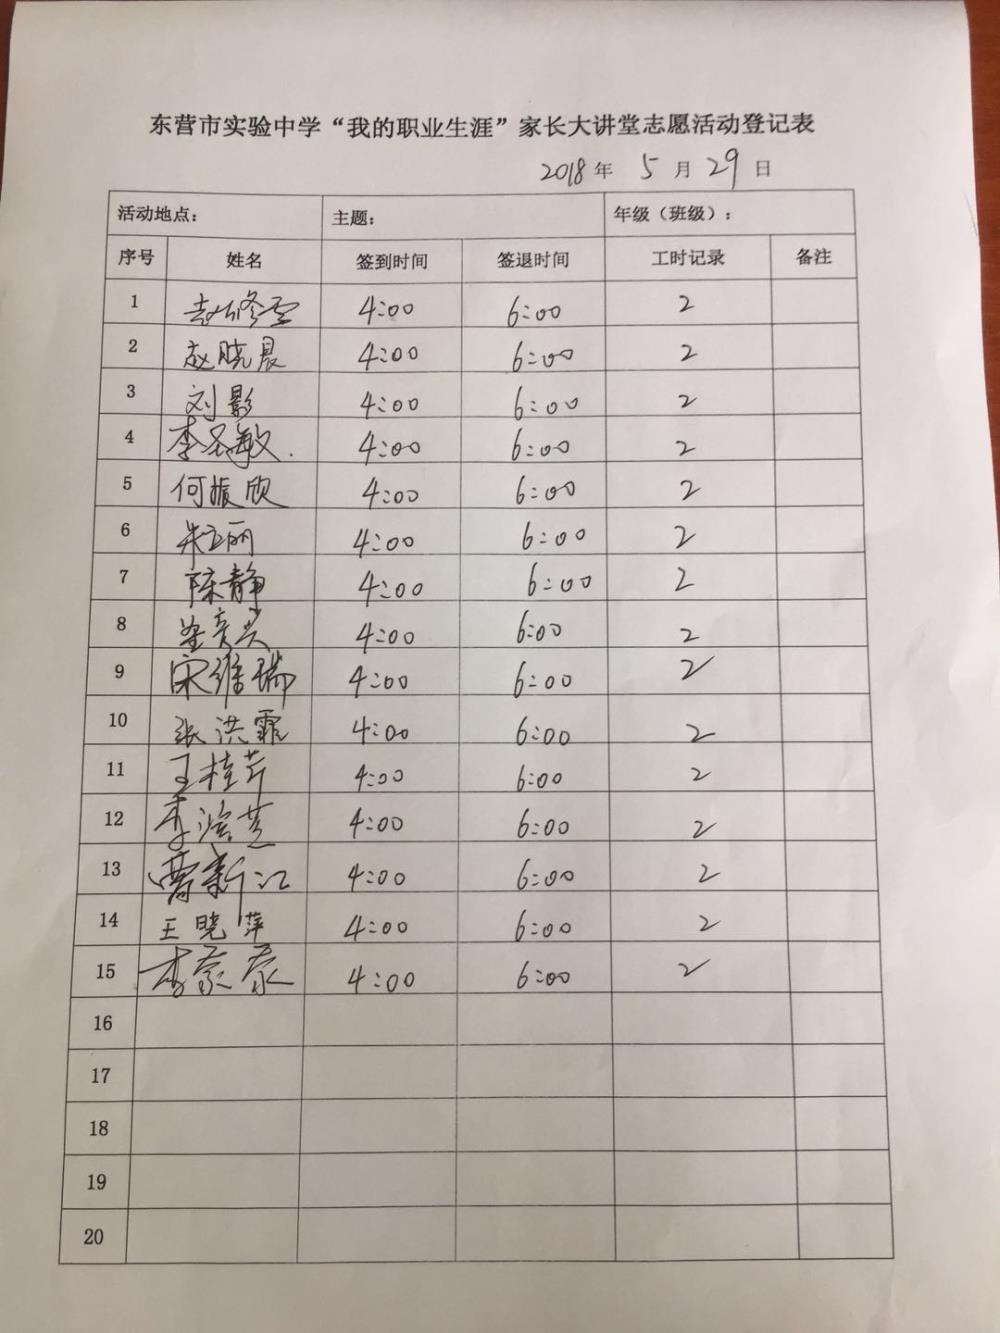 东营市实验中学“我的职业生涯”家长大讲堂志愿活动登记表
2018年 5月29日
活动地点： 主题： 年级（班级）：
序号 姓名 签到时间 签退时间 工时记录 备注
1 4:00 6:00 2
2 赵晓晨 4:00 6:00 2
3 刘影 4:00 6:00 2
4 李圣敏 4:00 6:00 2
5 何振欣 4:00 6:00 2
6 朱立丽 4:00 6:00 2
7 陈静 4:00 6:00 2
8 4:00 6:00 2
9 宋维瑞 4:00 6:00 2
10 张洪霏 4:00 6:00 2
11 王桂芹 4:00 6:00 2
12 李 4:00 6:00 2
13 曹新江 4:00 6:00 2
14 王晓萍 4:00 6:00 2
15 李 4:00 6:00 2
16
17
18
19
20